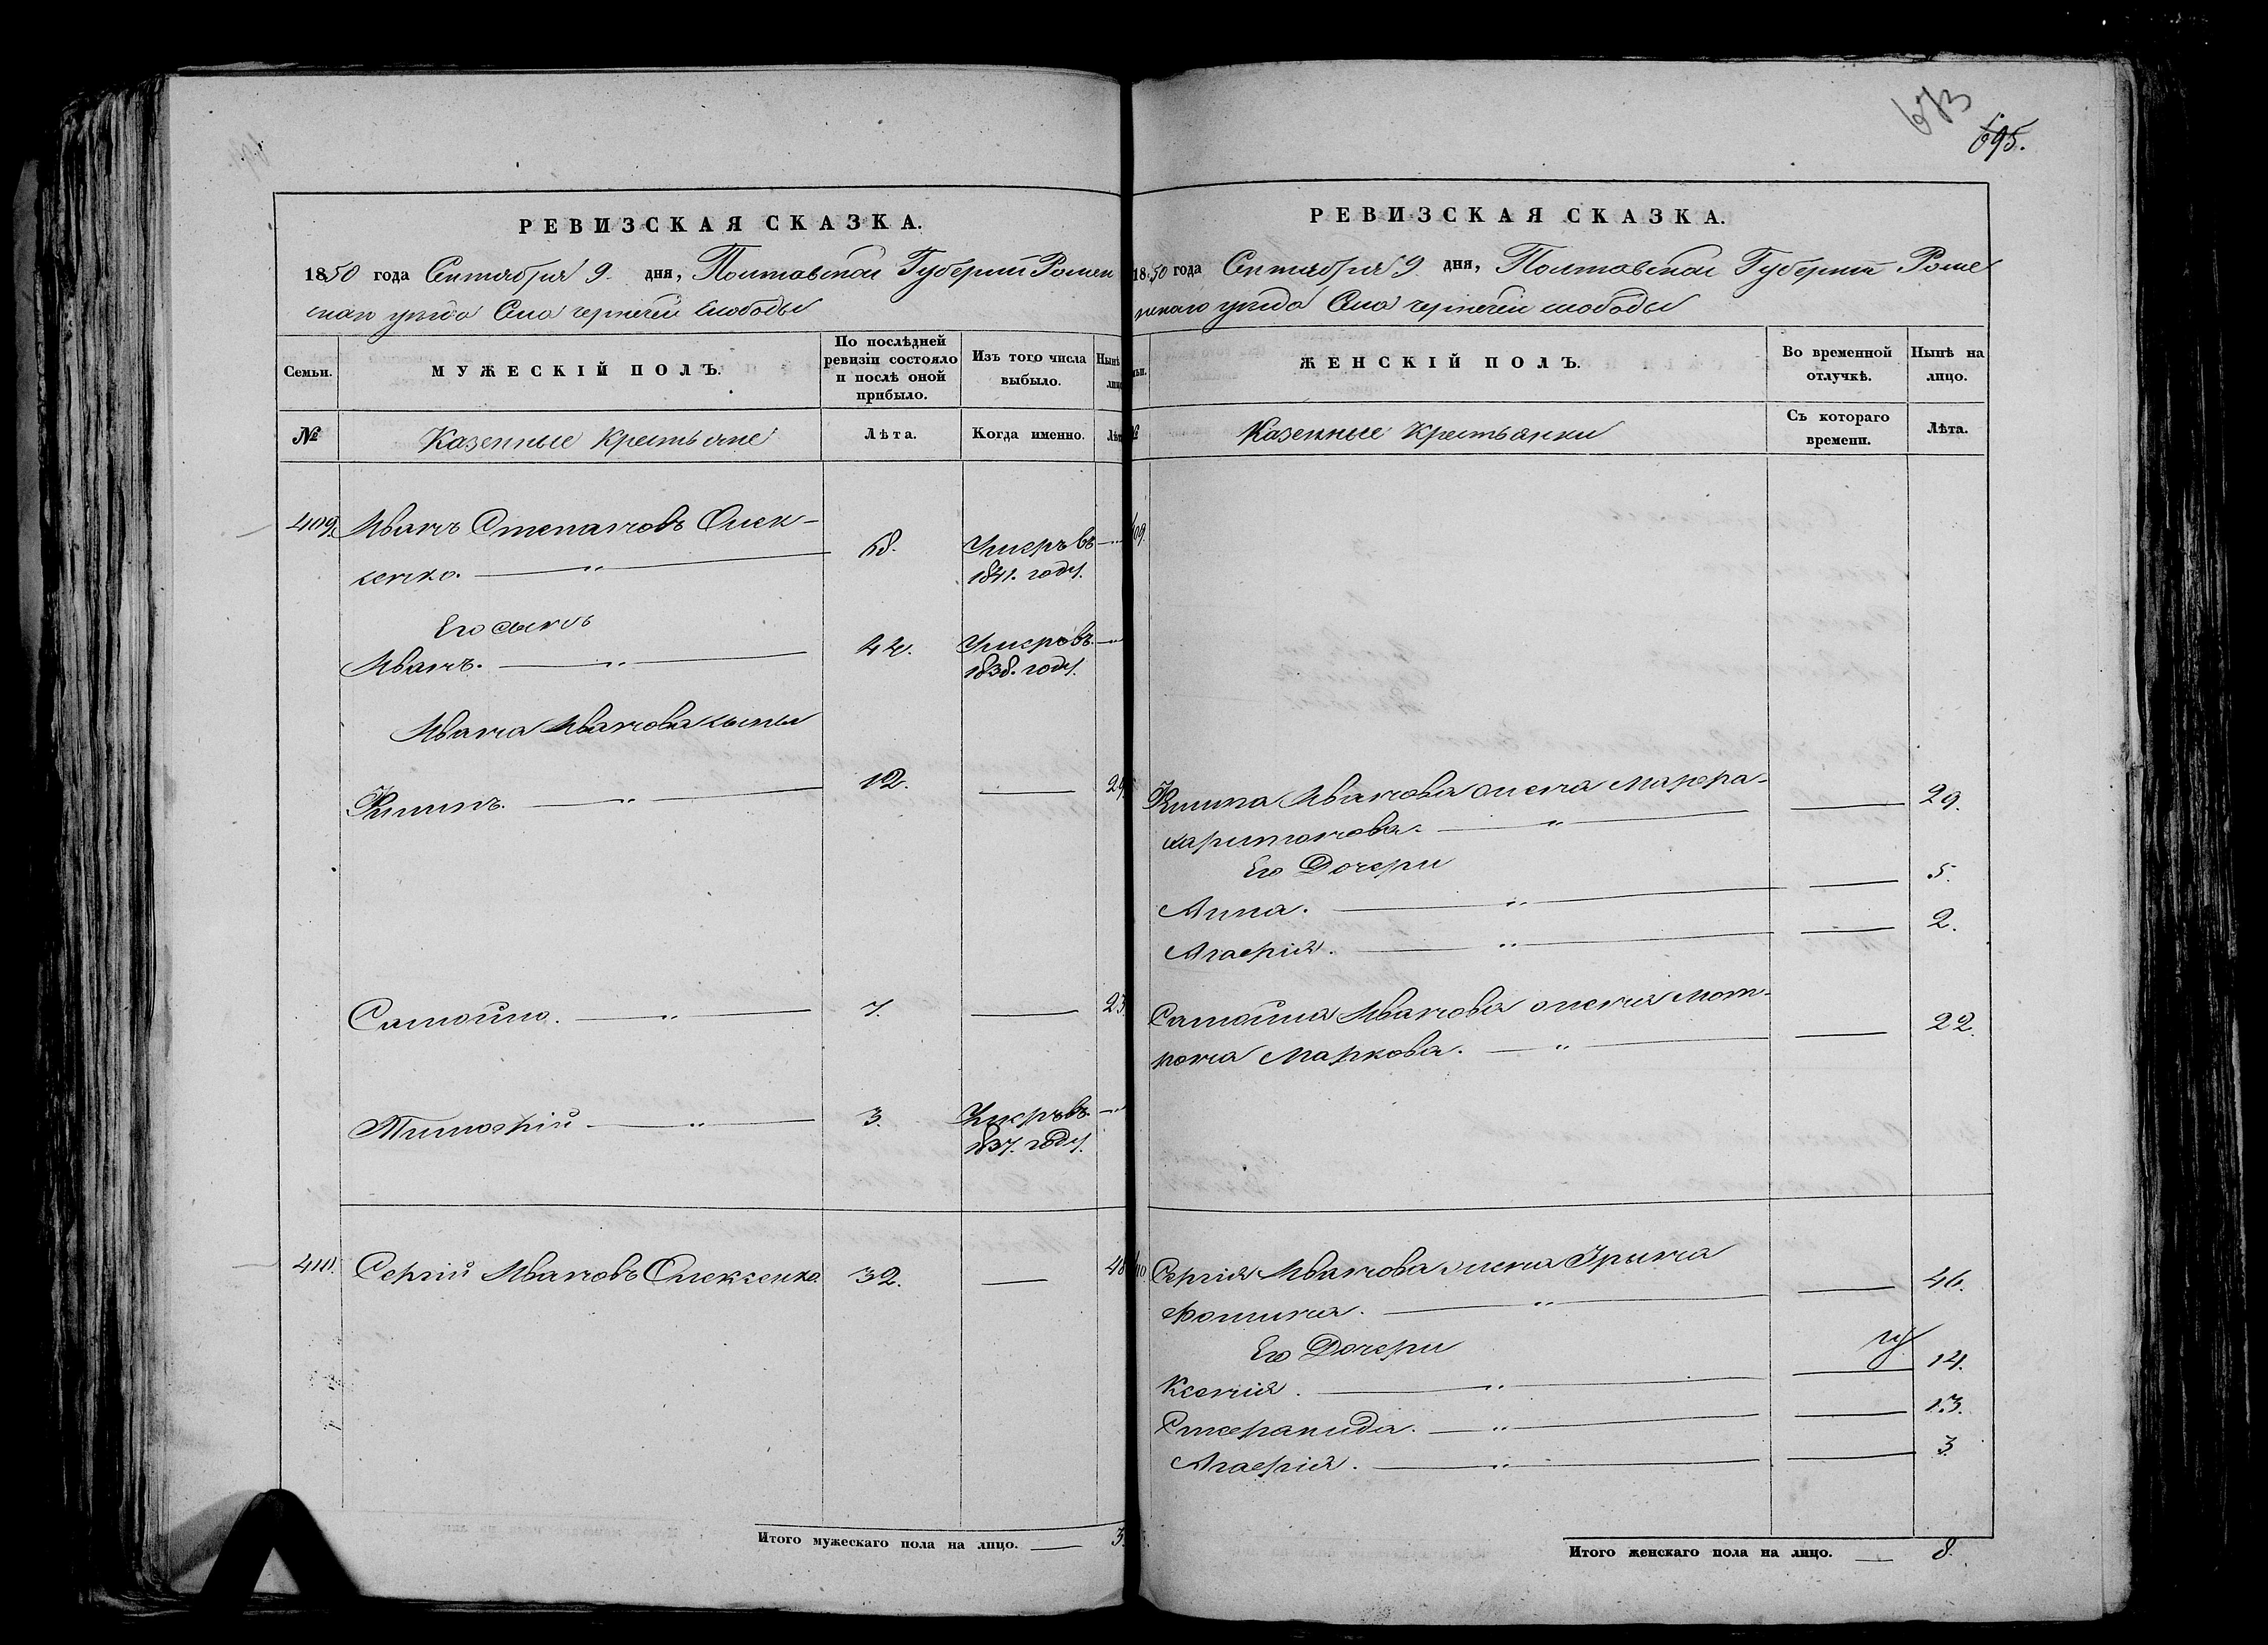 673
695.
РЕВИЗСКАЯ СКАЗКА.
1850 года Сентября 9. дня, Полтавской Губерніи Ромен
скаго уѣзда Села чернечей слободы
Семьи.
МУЖЕСКІЙ ПОЛЪ.
По послѣдней
ревизіи состояло
и послѣ оной
прибыло.
Изъ того числа
выбыло.
Нынѣ
лицо
№
Казенные Крестьяне
Лѣта.
Когда именно.
Лѣт
409. Иванъ Степановъ Олек-
сенко. — 68. Умеръ въ
1841. году.
Его сынъ
Иванъ. — 44. Умеръ въ
1838. году.
Ивана Иванова сыны
Филипъ. — 12. — 29
Самойло. — 7. — 23.
Тимофѣй — 3. Умеръ въ
1837. году.
410. Сергій Ивановъ Олексенко 32. — 48
Итого мужескаго пола на лицо. — 3
РЕВИЗСКАЯ СКАЗКА.
1850 года Сентября 9. дня, Полтавской Губерніи Роме
нскаго уѣзда Села чернечей слободы
ьи.
ЖЕНСКІЙ ПОЛЪ.
Во временной
отлучкѣ.
Нынѣ на
лицо.
№
Казенные Крестьянки
Съ котораго
времени.
Лѣта.
409.
Филипа Иванова жена Марфа
харитонова. — 29.
Его Дочери
Анна. — 5.
Агафія. — 2.
Самойла Иванова жена Мот-
рона Маркова. — 22.
410 Сергія Иванова жена Ирина
Фомина. — 46.
Его Дочери
Ксенія. — 14.
13.
Агафія. — 3.
Итого женскаго пола на лицо. — 8.